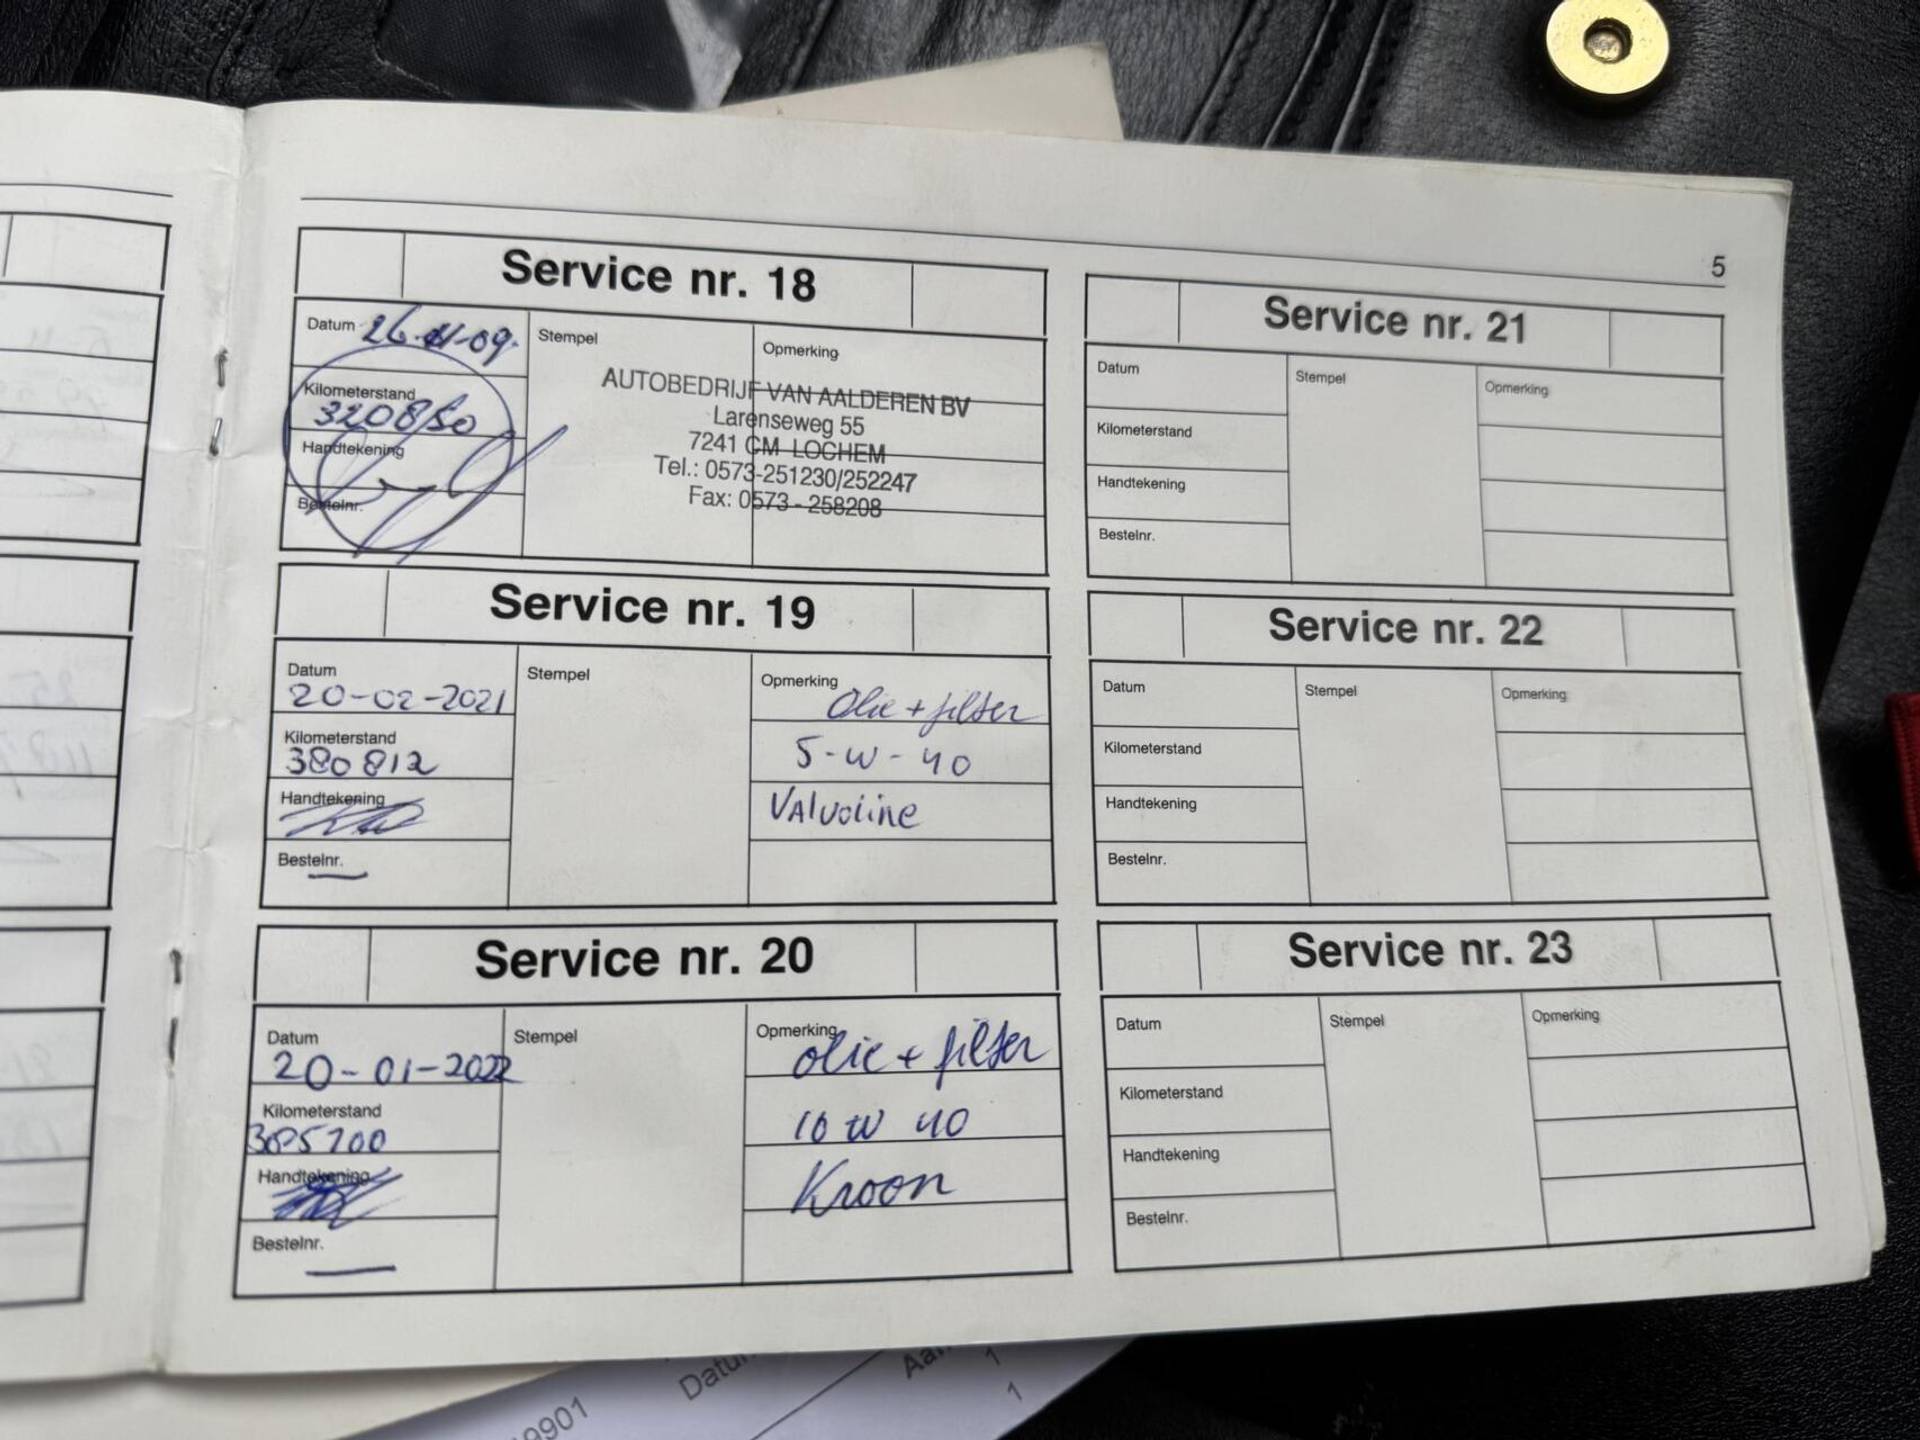 5
Service nr. 18
Datum 26-11-09.
Kilometerstand
320850
Handtekening
Bestelnr.
Stempel
Opmerking
AUTOBEDRIJF VAN AALDEREN BV
Larenseweg 55
7241 CM LOCHEM
Tel.: 0573-251230/252247
Fax: 0573 - 258208
Service nr. 19
Datum
20-02-2021
Kilometerstand
380812
Handtekening
Bestelnr.
Stempel
Opmerking
Olie + filter
5-W-40
Valvoline
Service nr. 20
Datum
20-01-2022
Kilometerstand
385700
Handtekening
Bestelnr.
Stempel
Opmerking
olie + filter
10 W 40
Kroon
Service nr. 21
Datum
Kilometerstand
Handtekening
Bestelnr.
Stempel
Opmerking
Service nr. 22
Datum
Kilometerstand
Handtekening
Bestelnr.
Stempel
Opmerking
Service nr. 23
Datum
Kilometerstand
Handtekening
Bestelnr.
Stempel
Opmerking
9901
1
1